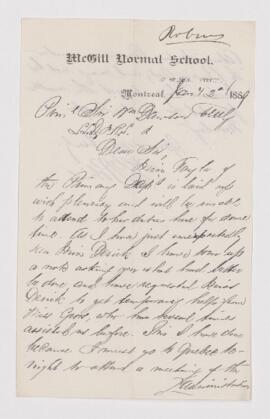 Robins
McGill Normal School.
Montreal, Jany 12th 1889
Prinl Sir Wm Dawson
Dear Sir,
Miss Taylor of
the Primary Dept is laid up
with pleurisy and will be unable
to attend to her duties here for some
time. As I have just unexpectedly
seen Miss Derick I have torn up
a note asking you what had better
be done, and have requested Miss
Derick to get temporary help from
Miss who has several times
assisted us before. This I have done
because I must go to Quebec to-
night to attend a meeting of the
Administrative